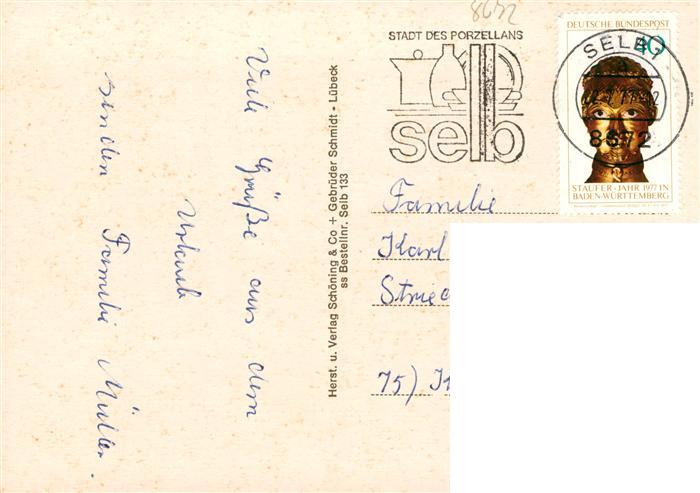 8672
STADT DES PORZELLANS
selb
DEUTSCHE BUNDESPOST
40
SELB 1
a
8672
STAUFER-JAHR 1977 IN
BADEN-WÜRTTEMBERG
Viele Grüße aus dem
Urlaub
senden Familie Müller.
Herst. u. Verlag Schöning & Co + Gebrüder Schmidt - Lübeck
ss Bestellnr. Selb 133
Familie
Karl
75)